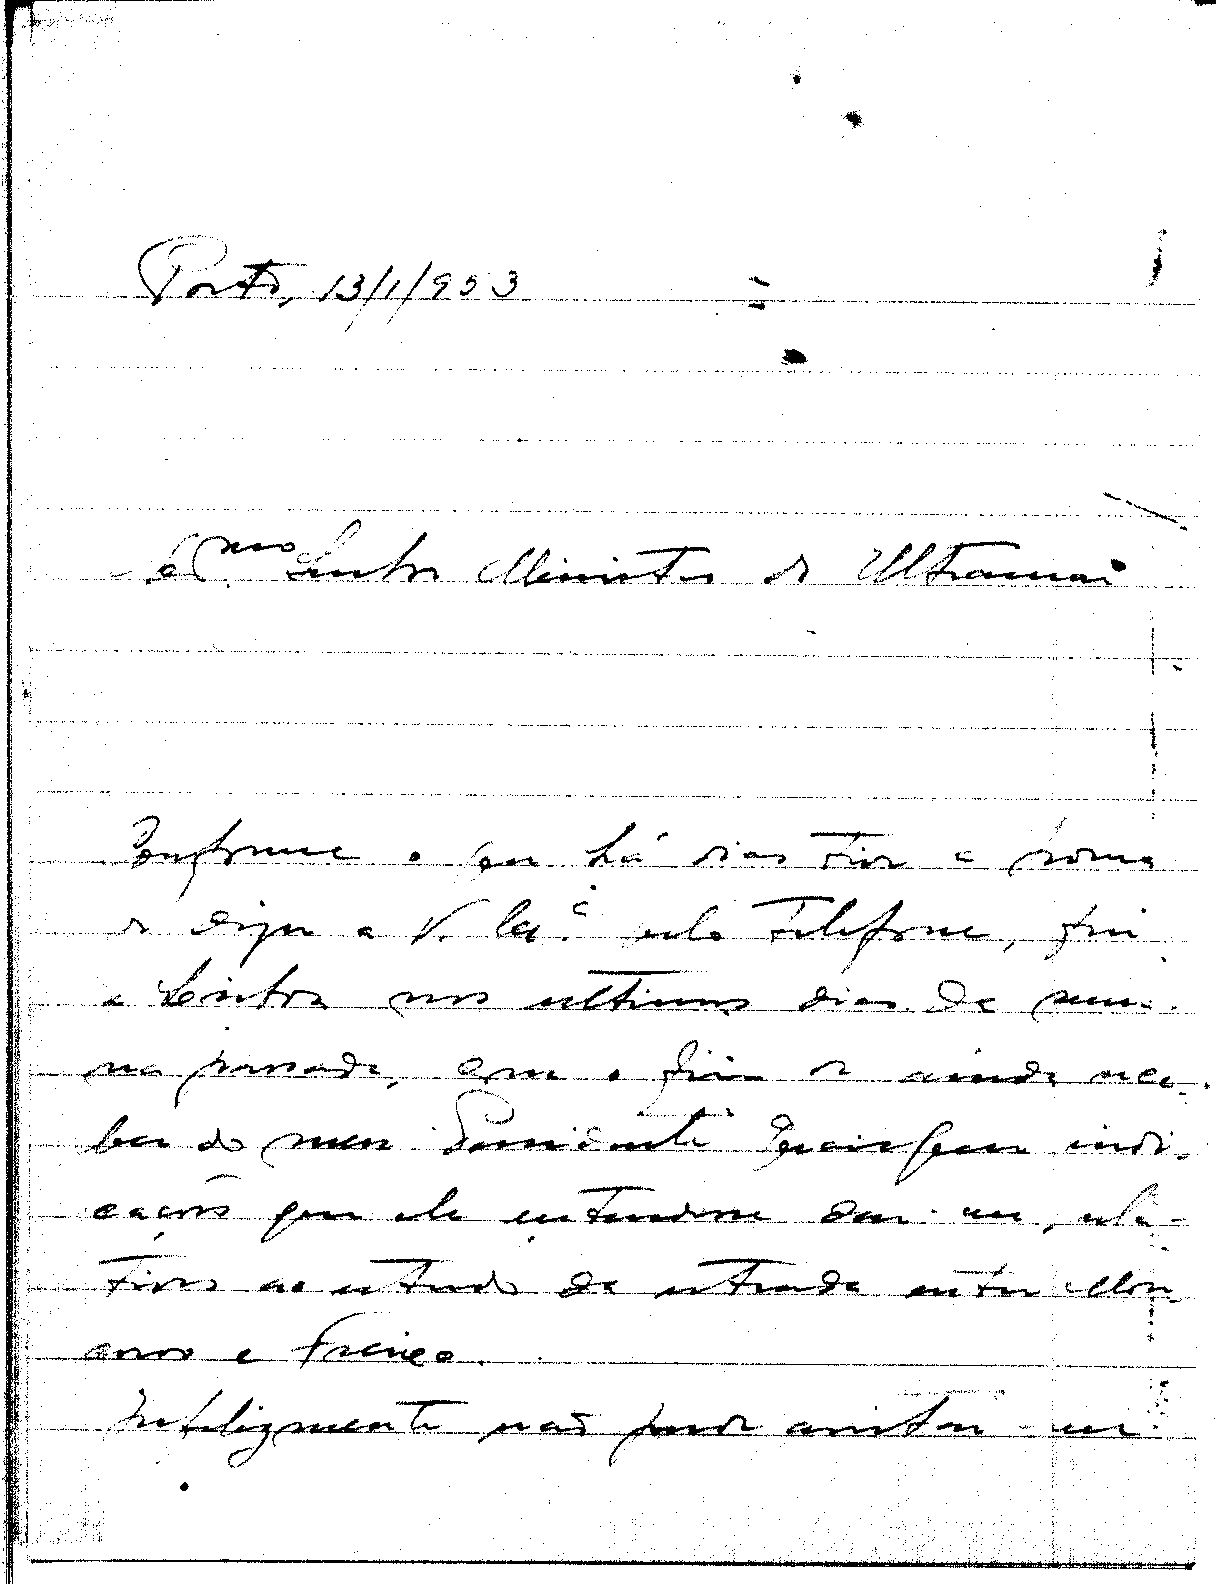 Porto, 13/1/953
Exmo. Senhor Ministro do Ultramar
Conforme o que há dias tive a honra
de dizer a V. Exa. pelo telefone, fui
a Sintra nos ultimos dias da sema-
na passada, com o fim de ainda rece-
ber do meu Presidente quaisquer indi-
cações que ele entendesse dar-me, rela-
tivas ao estudo da estrada entre
e
Infelizmente não pude avistar-me